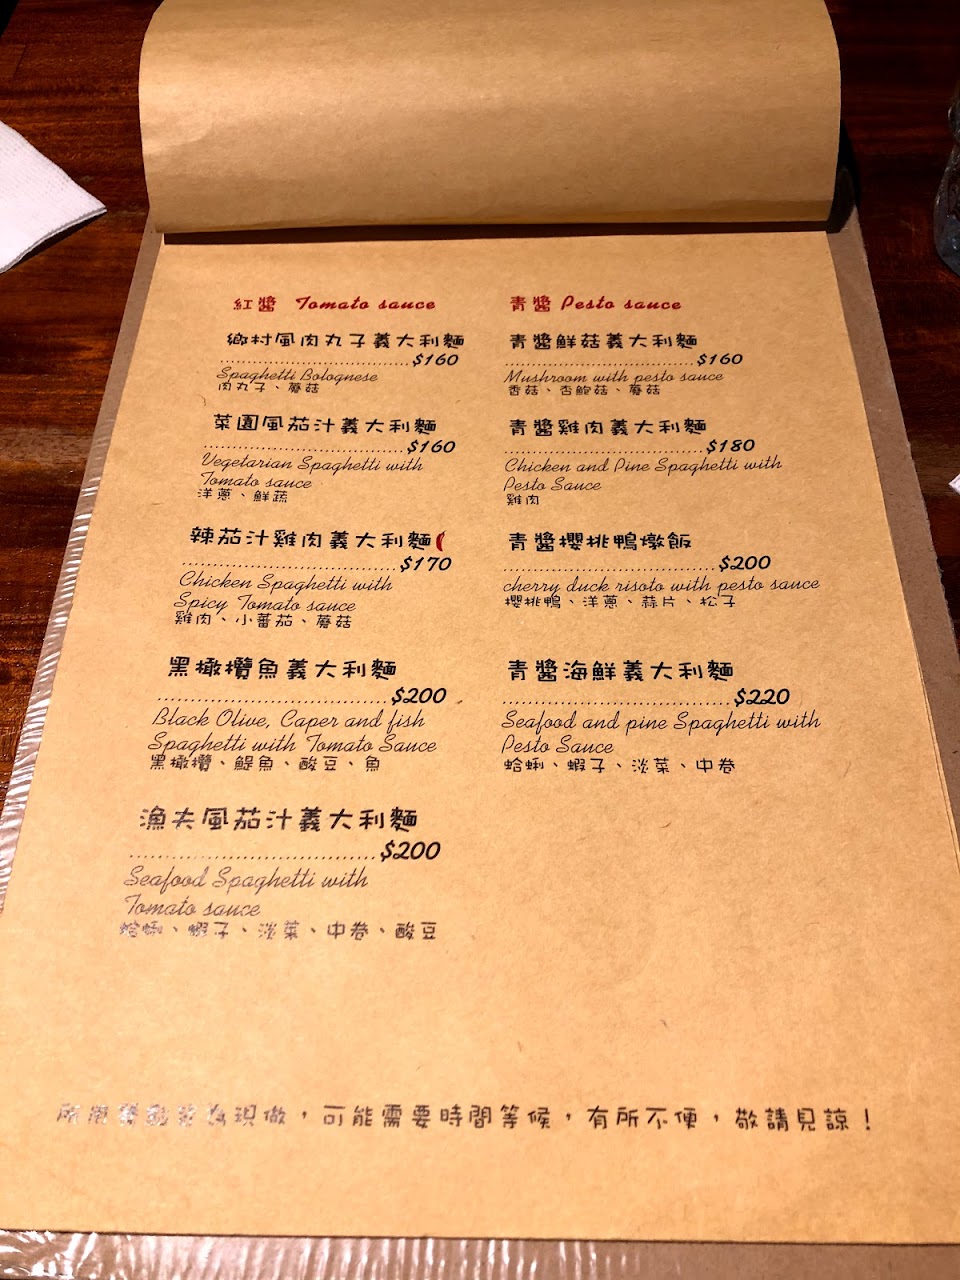 紅醬 Tomato sauce
鄉村風肉丸子義大利麵
........................................$160
Spaghetti Bolognese
肉丸子、蘑菇
菜園風茄汁義大利麵
........................................$160
Vegetarian Spaghetti with
Tomato sauce
洋蔥、鮮蔬
辣茄汁雞肉義大利麵
........................................$170
Chicken Spaghetti with
Spicy Tomato sauce
雞肉、小蕃茄、蘑菇
黑橄欖魚義大利麵
........................................$200
Black Olive, Caper and fish
Spaghetti with Tomato Sauce
黑橄欖、鯷魚、酸豆、魚
漁夫風茄汁義大利麵
........................................$200
Seafood Spaghetti with
Tomato sauce
蛤蜊、蝦子、淡菜、中卷、酸豆
青醬 Pesto sauce
青醬鮮菇義大利麵
........................................$160
Mushroom with pesto sauce
香菇、杏鮑菇、蘑菇
青醬雞肉義大利麵
........................................$180
Chicken and Pine Spaghetti with
Pesto Sauce
雞肉
青醬櫻桃鴨燉飯
........................................$200
cherry duck risoto with pesto sauce
櫻桃鴨、洋蔥、蒜片、松子
青醬海鮮義大利麵
........................................$220
Seafood and pine Spaghetti with
Pesto Sauce
蛤蜊、蝦子、淡菜、中卷
所有餐點皆為現做，可能需要時間等候，有所不便，敬請見諒！